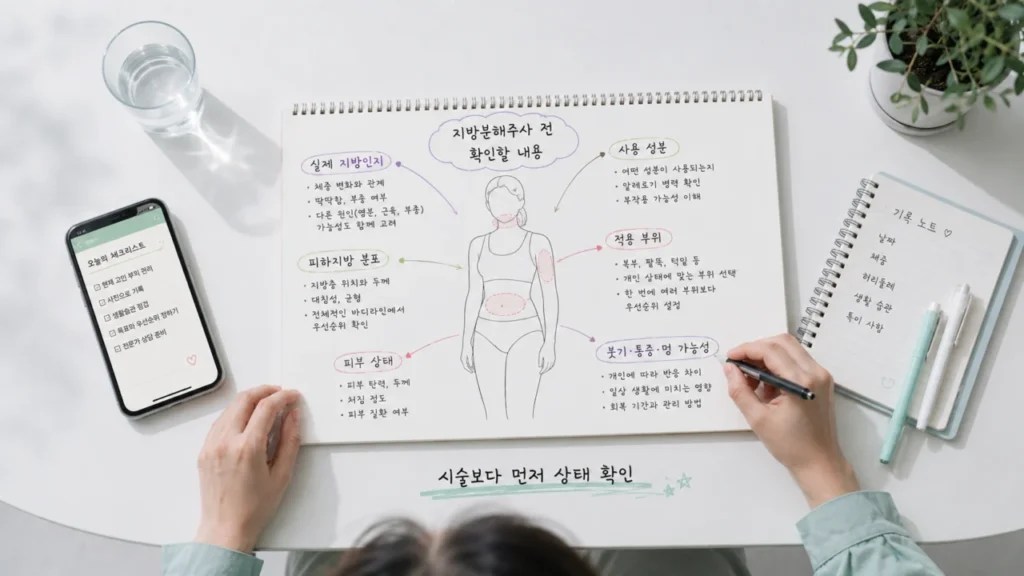 지방분해주사 전
확인할 내용
실제 지방인지
• 체중 변화와 관계
• 딱딱함, 부종 여부
• 다른 원인(염분, 근육, 부종)
가능성도 함께 고려
피하지방 분포
• 지방층 위치와 두께
• 대칭성, 균형
• 전체적인 바디라인에서
우선순위 확인
피부 상태
• 피부 탄력, 두께
• 처짐 정도
• 피부 질환 여부
사용 성분
• 어떤 성분이 사용되는지
• 알레르기 병력 확인
• 부작용 가능성 이해
적용 부위
• 복부, 팔뚝, 턱밑 등
• 개인 상태에 맞는 부위 선택
• 한 번에 여러 부위보다
우선순위 설정
붓기·통증·멍 가능성
• 개인에 따라 반응 차이
• 일상 생활에 미치는 영향
• 회복 기간과 관리 방법
시술보다 먼저 상태 확인
오늘의 체크리스트
현재 고민 부위 정리
사진으로 기록
생활습관 점검
목표와 우선순위 정하기
전문가 상담 준비
기록 노트 ♡
날짜
체중
허리둘레
생활 습관
특이 사항